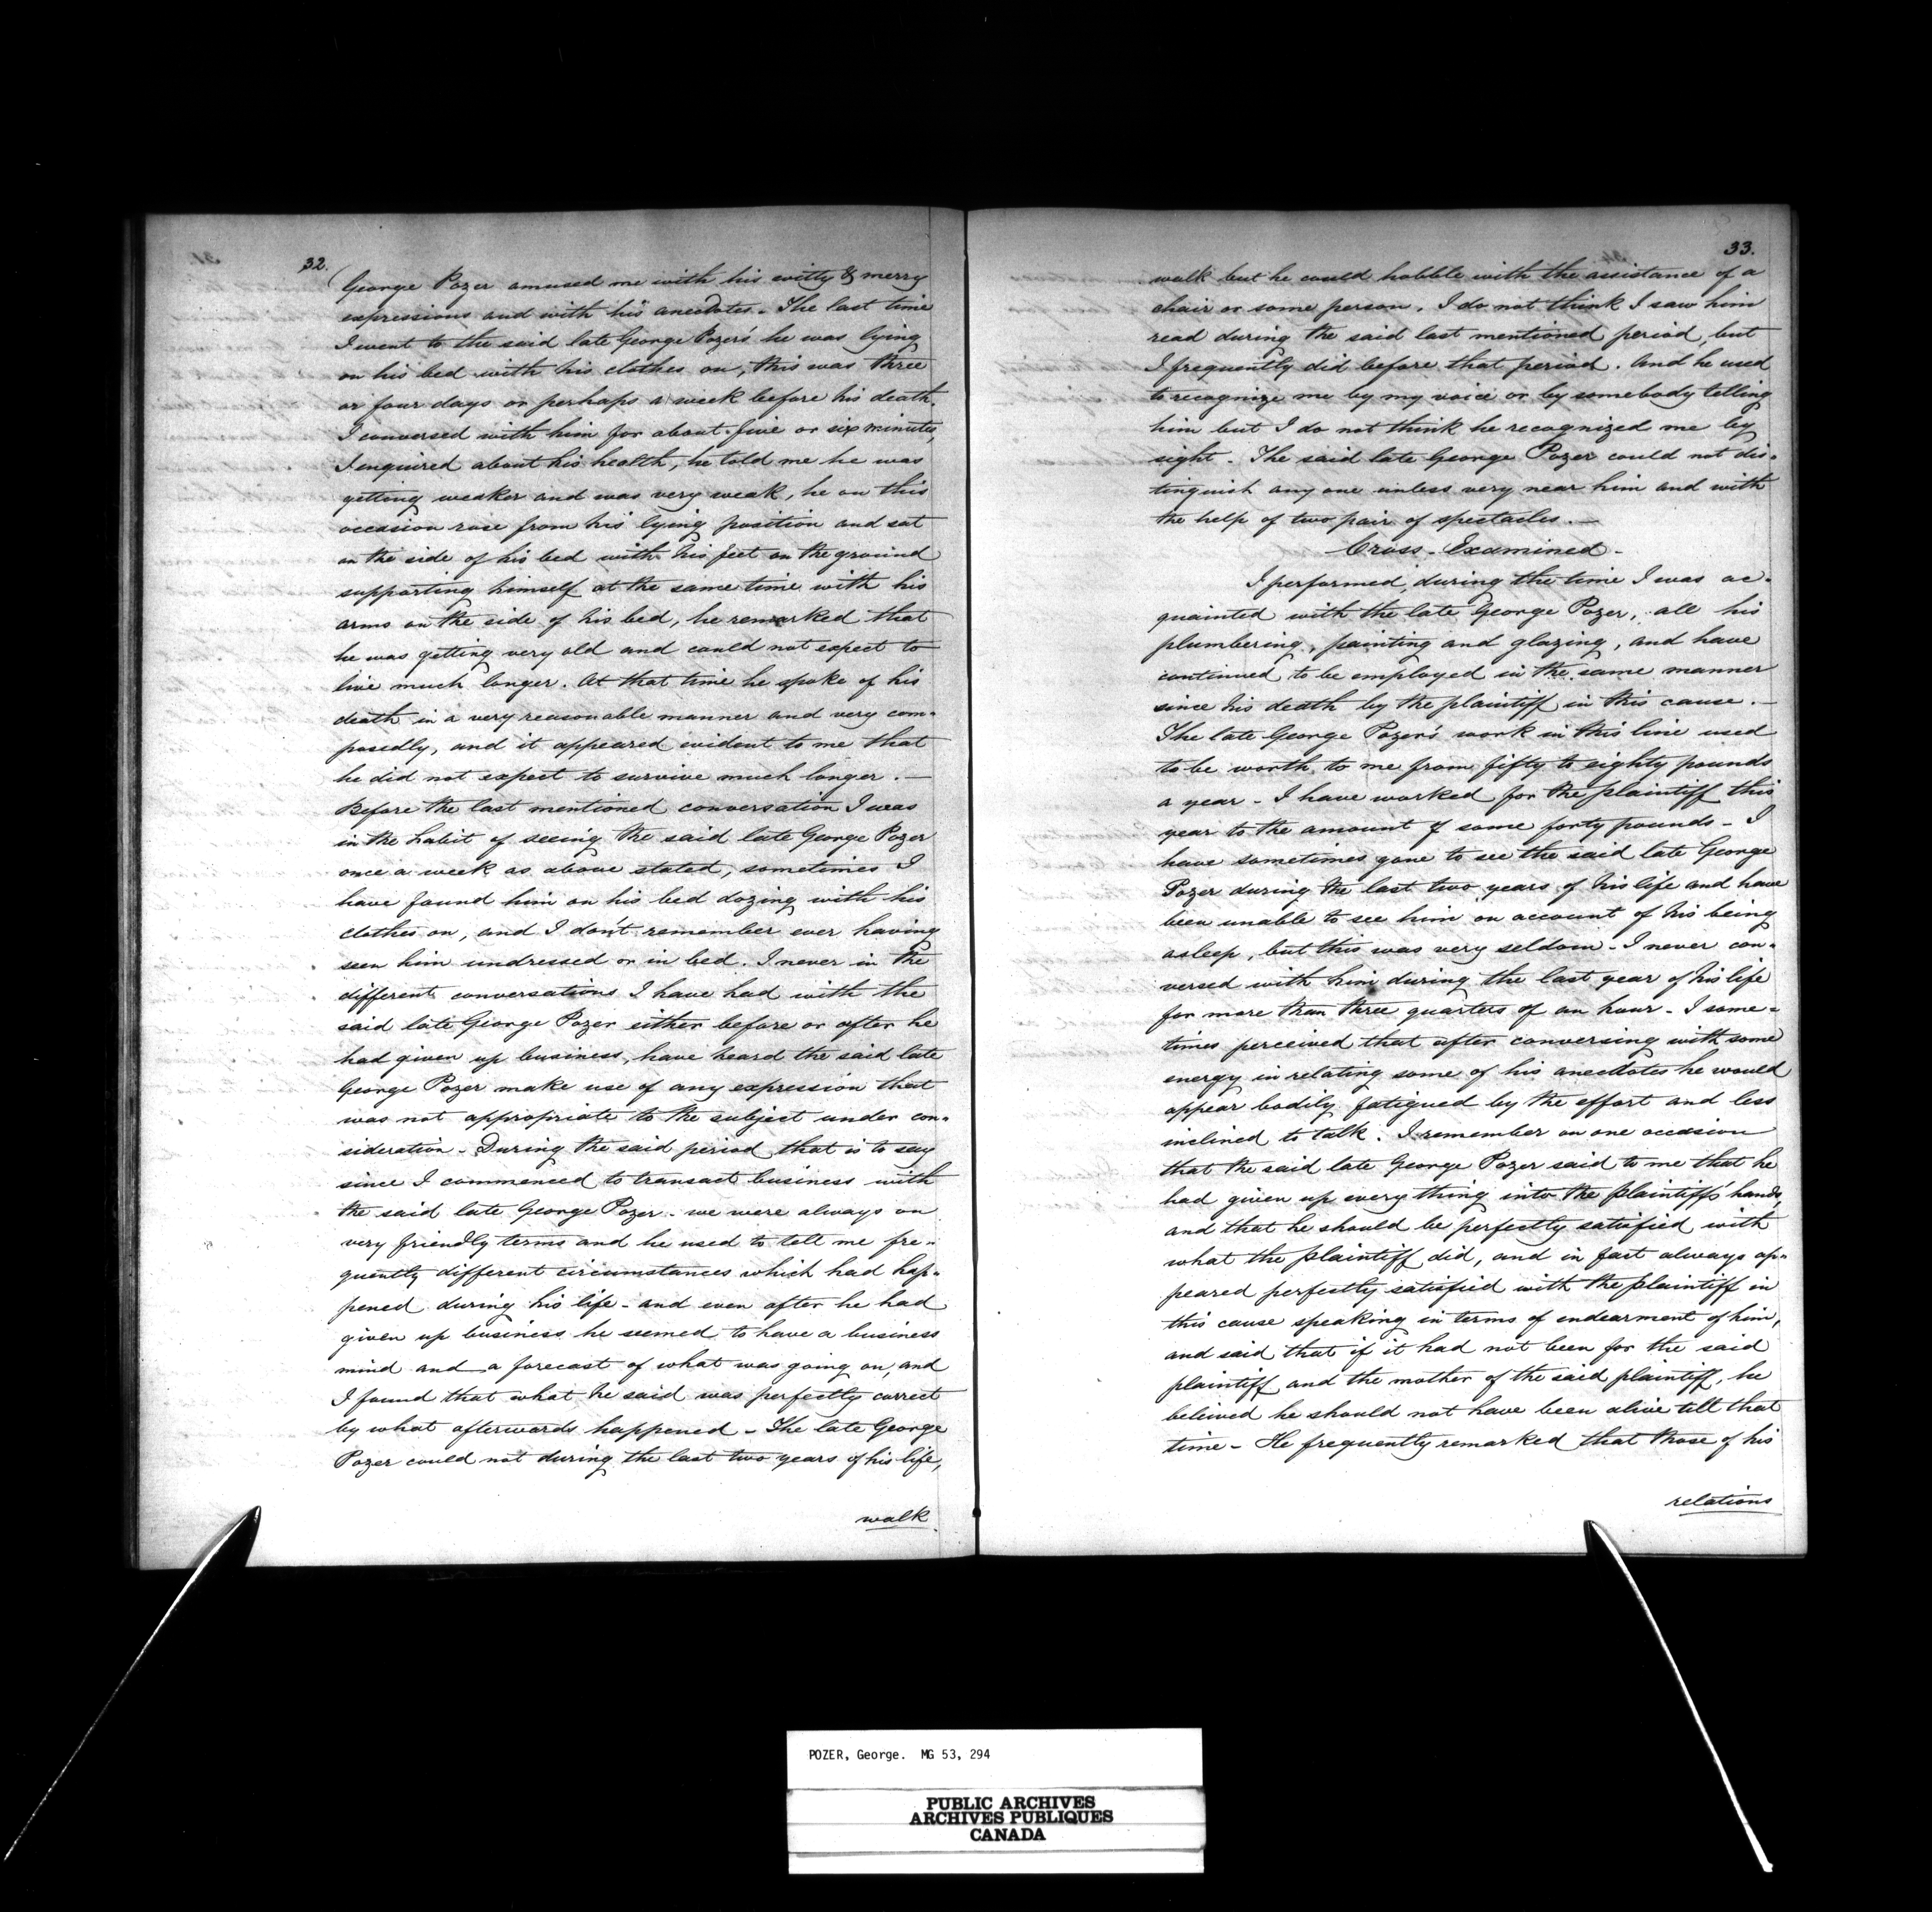 32.
George Pozer amused me with his witty & merry
expressions and with his anecdotes. The last time
I went to the said late George Pozer's he was lying
on his bed with his clothes on, this was three
or four days or perhaps a week before his death.
I conversed with him for about five or six minutes,
I enquired about his health, he told me he was
getting weaker and was very weak, he on this
occasion rose from his lying position and sat
on the side of his bed with his feet on the ground
supporting himself at the same time with his
arms on the side of his bed, he remarked that
he was getting very old and could not expect to
live much longer. At that time he spoke of his
death in a very reasonable manner and very com-
posedly, and it appeared evident to me that
he did not expect to survive much longer. —
Before the last mentioned conversation I was
in the habit of seeing the said late George Pozer
once a week as above stated, sometimes I
have found him on his bed dozing with his
clothes on, and I don't remember ever having
seen him undressed or in bed. I never in the
different conversations I have had with the
said late George Pozer either before or after he
had given up business, have heard the said late
George Pozer make use of any expression that
was not appropriate to the subject under con-
sideration - During the said period that is to say
since I commenced to transact business with
the said late George Pozer - we were always on
very friendly terms and he used to tell me fre-
quently different circumstances which had hap-
pened during his life - and even after he had
given up business he seemed to have a business
mind and a forecast of what was going on, and
I found that what he said was perfectly correct
by what afterwards happened - The late George
Pozer could not during the last two years of his life,
walk
33.
walk but he could hobble with the assistance of a
chair or some person. I do not think I saw him
read during the said last mentioned period, but
I frequently did before that period. And he used
to recognize me by my voice or by somebody telling
him but I do not think he recognized me by
sight - The said late George Pozer could not dis-
tinguish any one unless very near him and with
the help of two pair of spectacles. —
Cross-Examined -
I performed, during the time I was ac-
quainted with the late George Pozer, all his
plumbering, painting and glazing, and have
continued to be employed in the same manner
since his death by the plaintiff in this cause. —
The late George Pozer's work in this line used
to be worth to me from fifty to eighty pounds
a year - I have worked for the plaintiff this
year to the amount of some forty pounds - I
have sometimes gone to see the said late George
Pozer during the last two years of his life and have
been unable to see him on account of his being
asleep, but this was very seldom - I never con-
versed with him during the last year of his life
for more than three quarters of an hour - I some-
times perceived that after conversing with some
energy in relating some of his anecdotes he would
appear bodily fatigued by the effort and less
inclined to talk. I remember on one occasion
that the said late George Pozer said to me that he
had given up every thing into the plaintiff's hands,
and that he should be perfectly satisfied with
what the plaintiff did, and in fact always ap-
peared perfectly satisfied with the plaintiff in
this cause speaking in terms of endearment of him,
and said that if it had not been for the said
plaintiff and the mother of the said plaintiff, he
beleived he should not have been alive till that
time - He frequently remarked that those of his
relations
POZER, George. MG 53, 294
PUBLIC ARCHIVES
ARCHIVES PUBLIQUES
CANADA